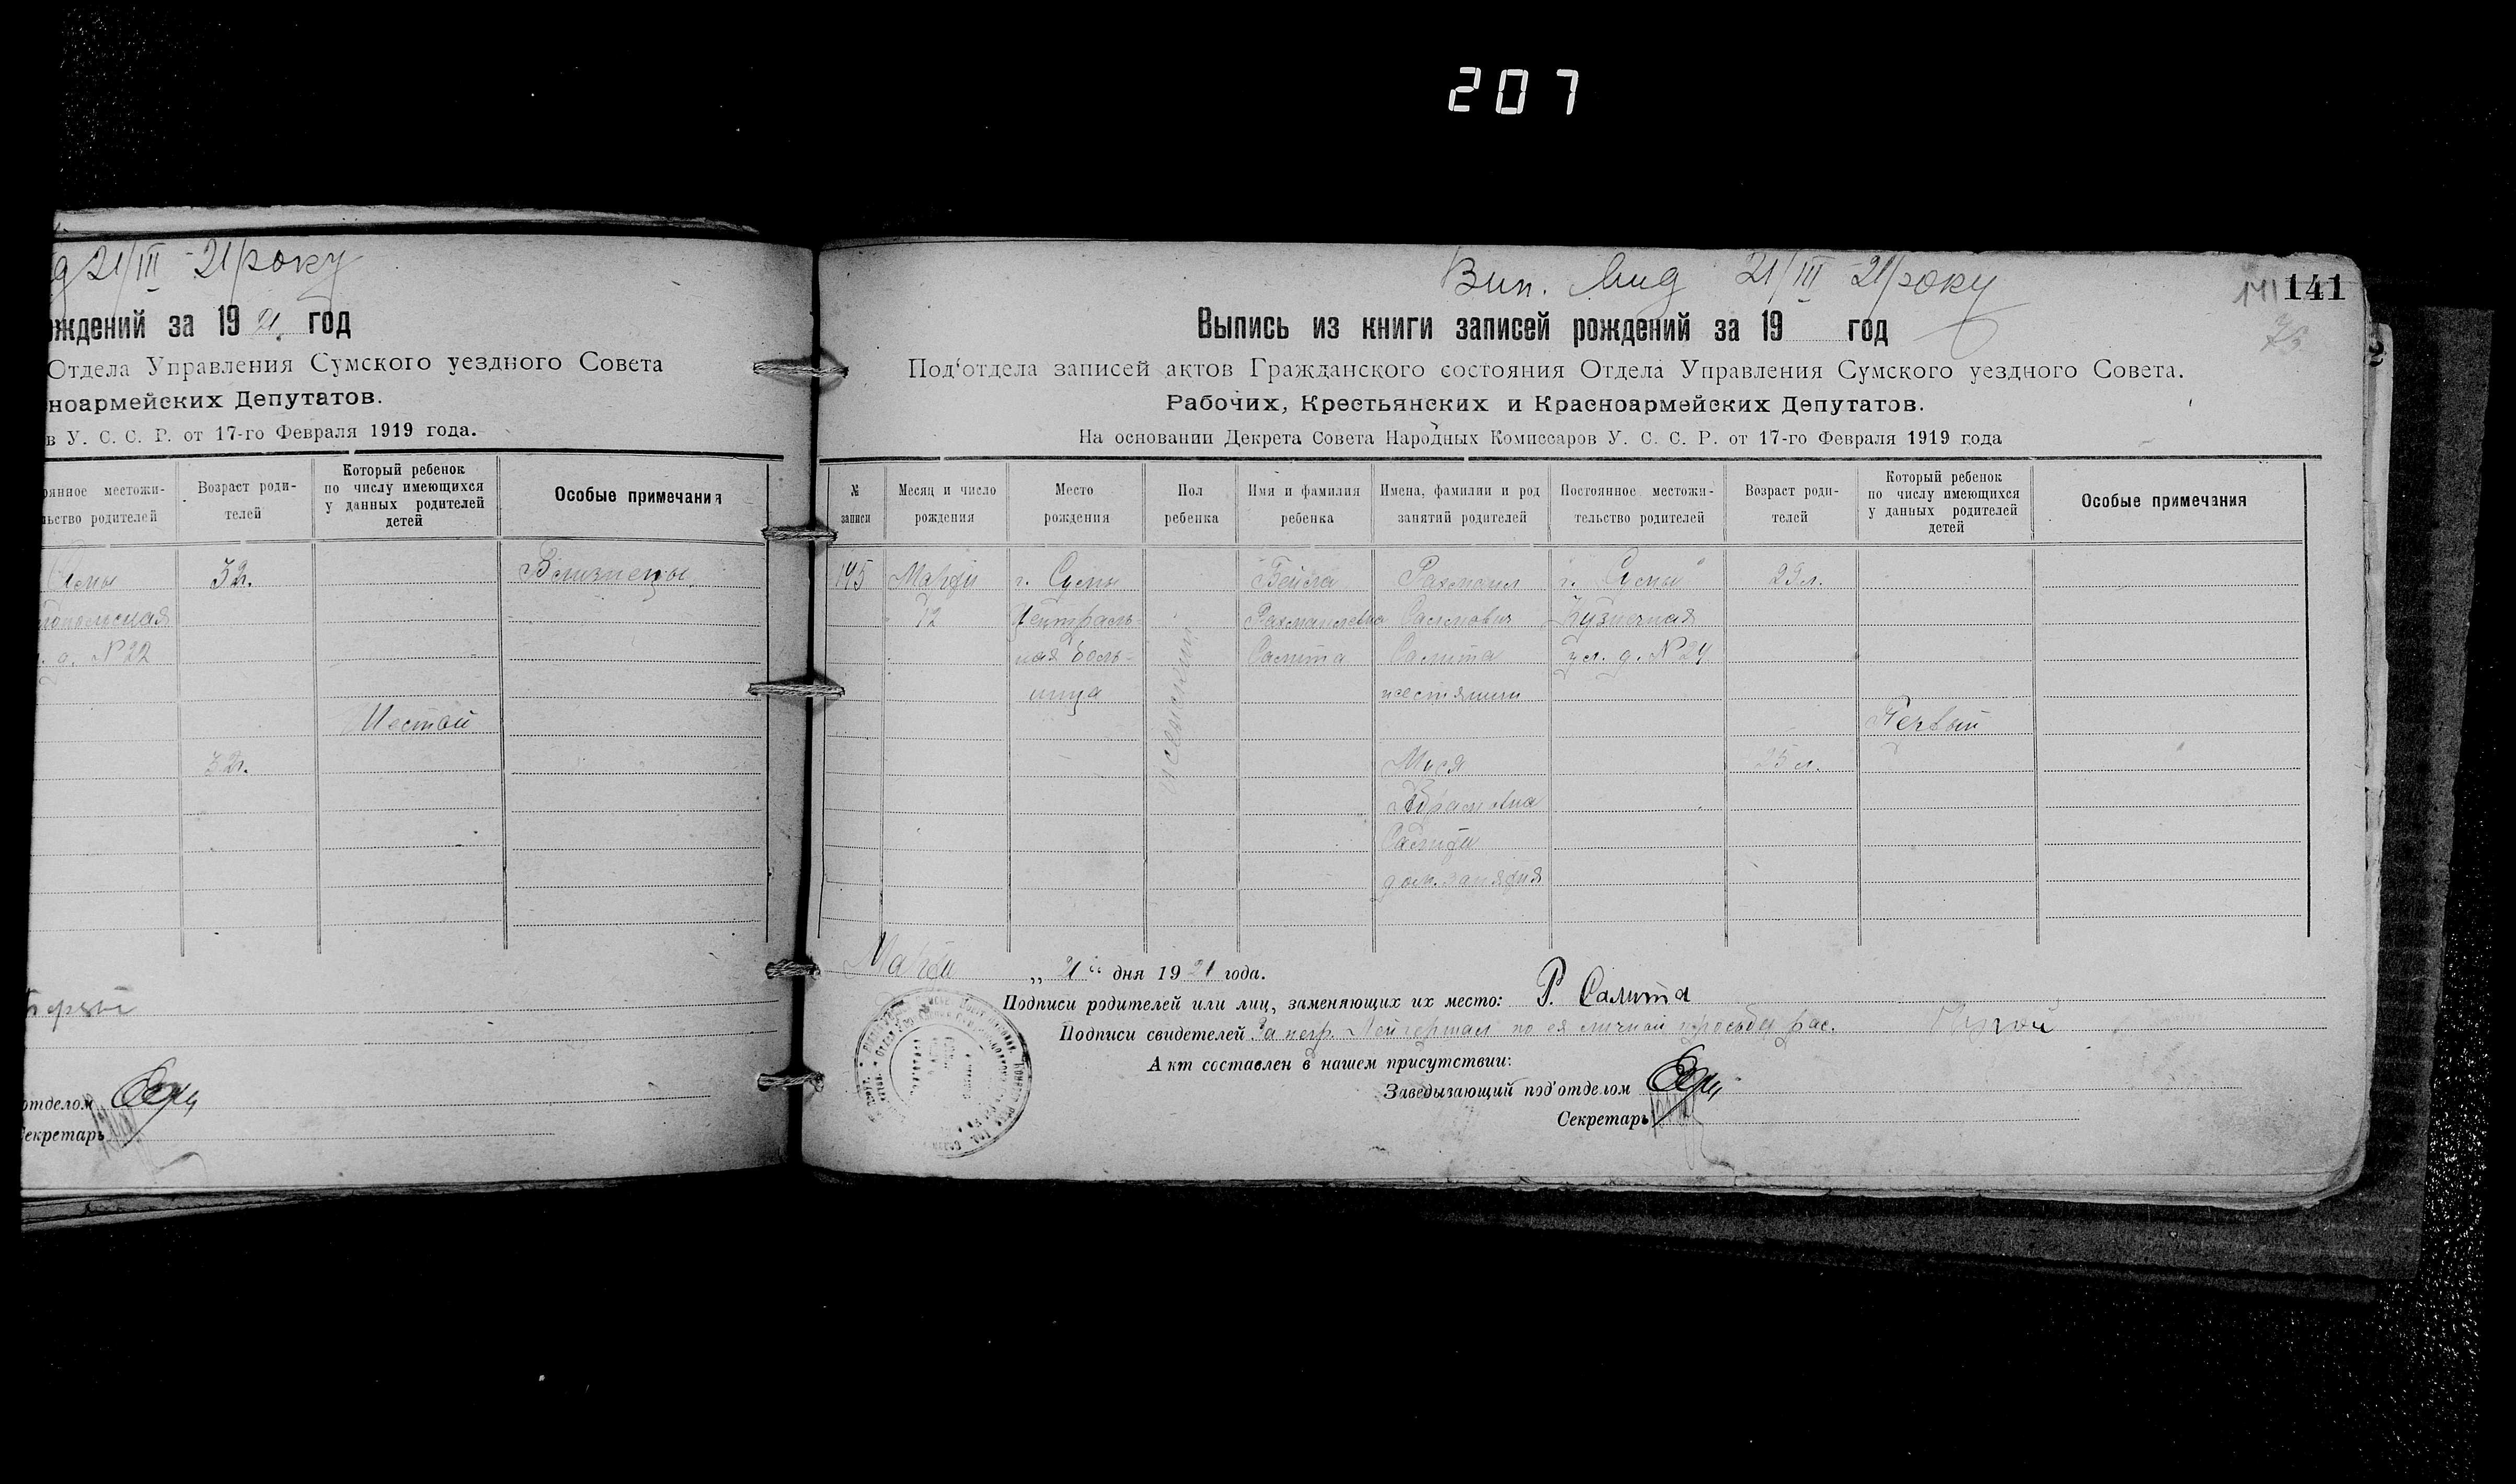 207
21/III - 21/року
ождений за 1921 год
Отдела Управления Сумского уездного Совета
ноармейских Депутатов.
в У. С. С. Р. от 17-го Февраля 1919 года.
янное местожи-
льство родителей
Возраст роди-
телей
Который ребенок
по числу имеющихся
у данных родителей
детей
Особые примечания
32г.
Близнецы
№ 22
Шестой
32г.
отделом
Секретарь
Вип. Вид 21/III - 21/року
141 141
Выпись из книги записей рождений за 19 год
Под'отдела записей актов Гражданского состояния Отдела Управления Сумского уездного Совета.
Рабочих, Крестьянских и Красноармейских Депутатов.
На основании Декрета Совета Народных Комиссаров У. С. С. Р. от 17-го Февраля 1919 года
№
записи
Месяц и число
рождения
Место
рождения
Пол
ребенка
Имя и фамилия
ребенка
Имена, фамилии и род
занятий родителей
Постоянное местожи-
тельство родителей
Возраст роди-
телей
Который ребенок
по числу имеющихся
у данных родителей
детей
Особые примечания
145
Марта
12
г. Сумы
Централь-
ная боль-
ница
женский
Бейла
Рахмаилевна
Салита
Рахмаил
Салита
жестянщик
Муся
Абрамовна
Салита
дом. занятия
г. Сумы
Кузнечная
ул. д. № 24
25 л.
Первый
Марта „21“ дня 1921 года.
Подписи родителей или лиц, заменяющих их место: Р. Салита
Подписи свидетелей За негр. по ея личной просьбе рас.
Акт составлен в нашем присутствии:
Заведывающий под'отделом
Секретарь